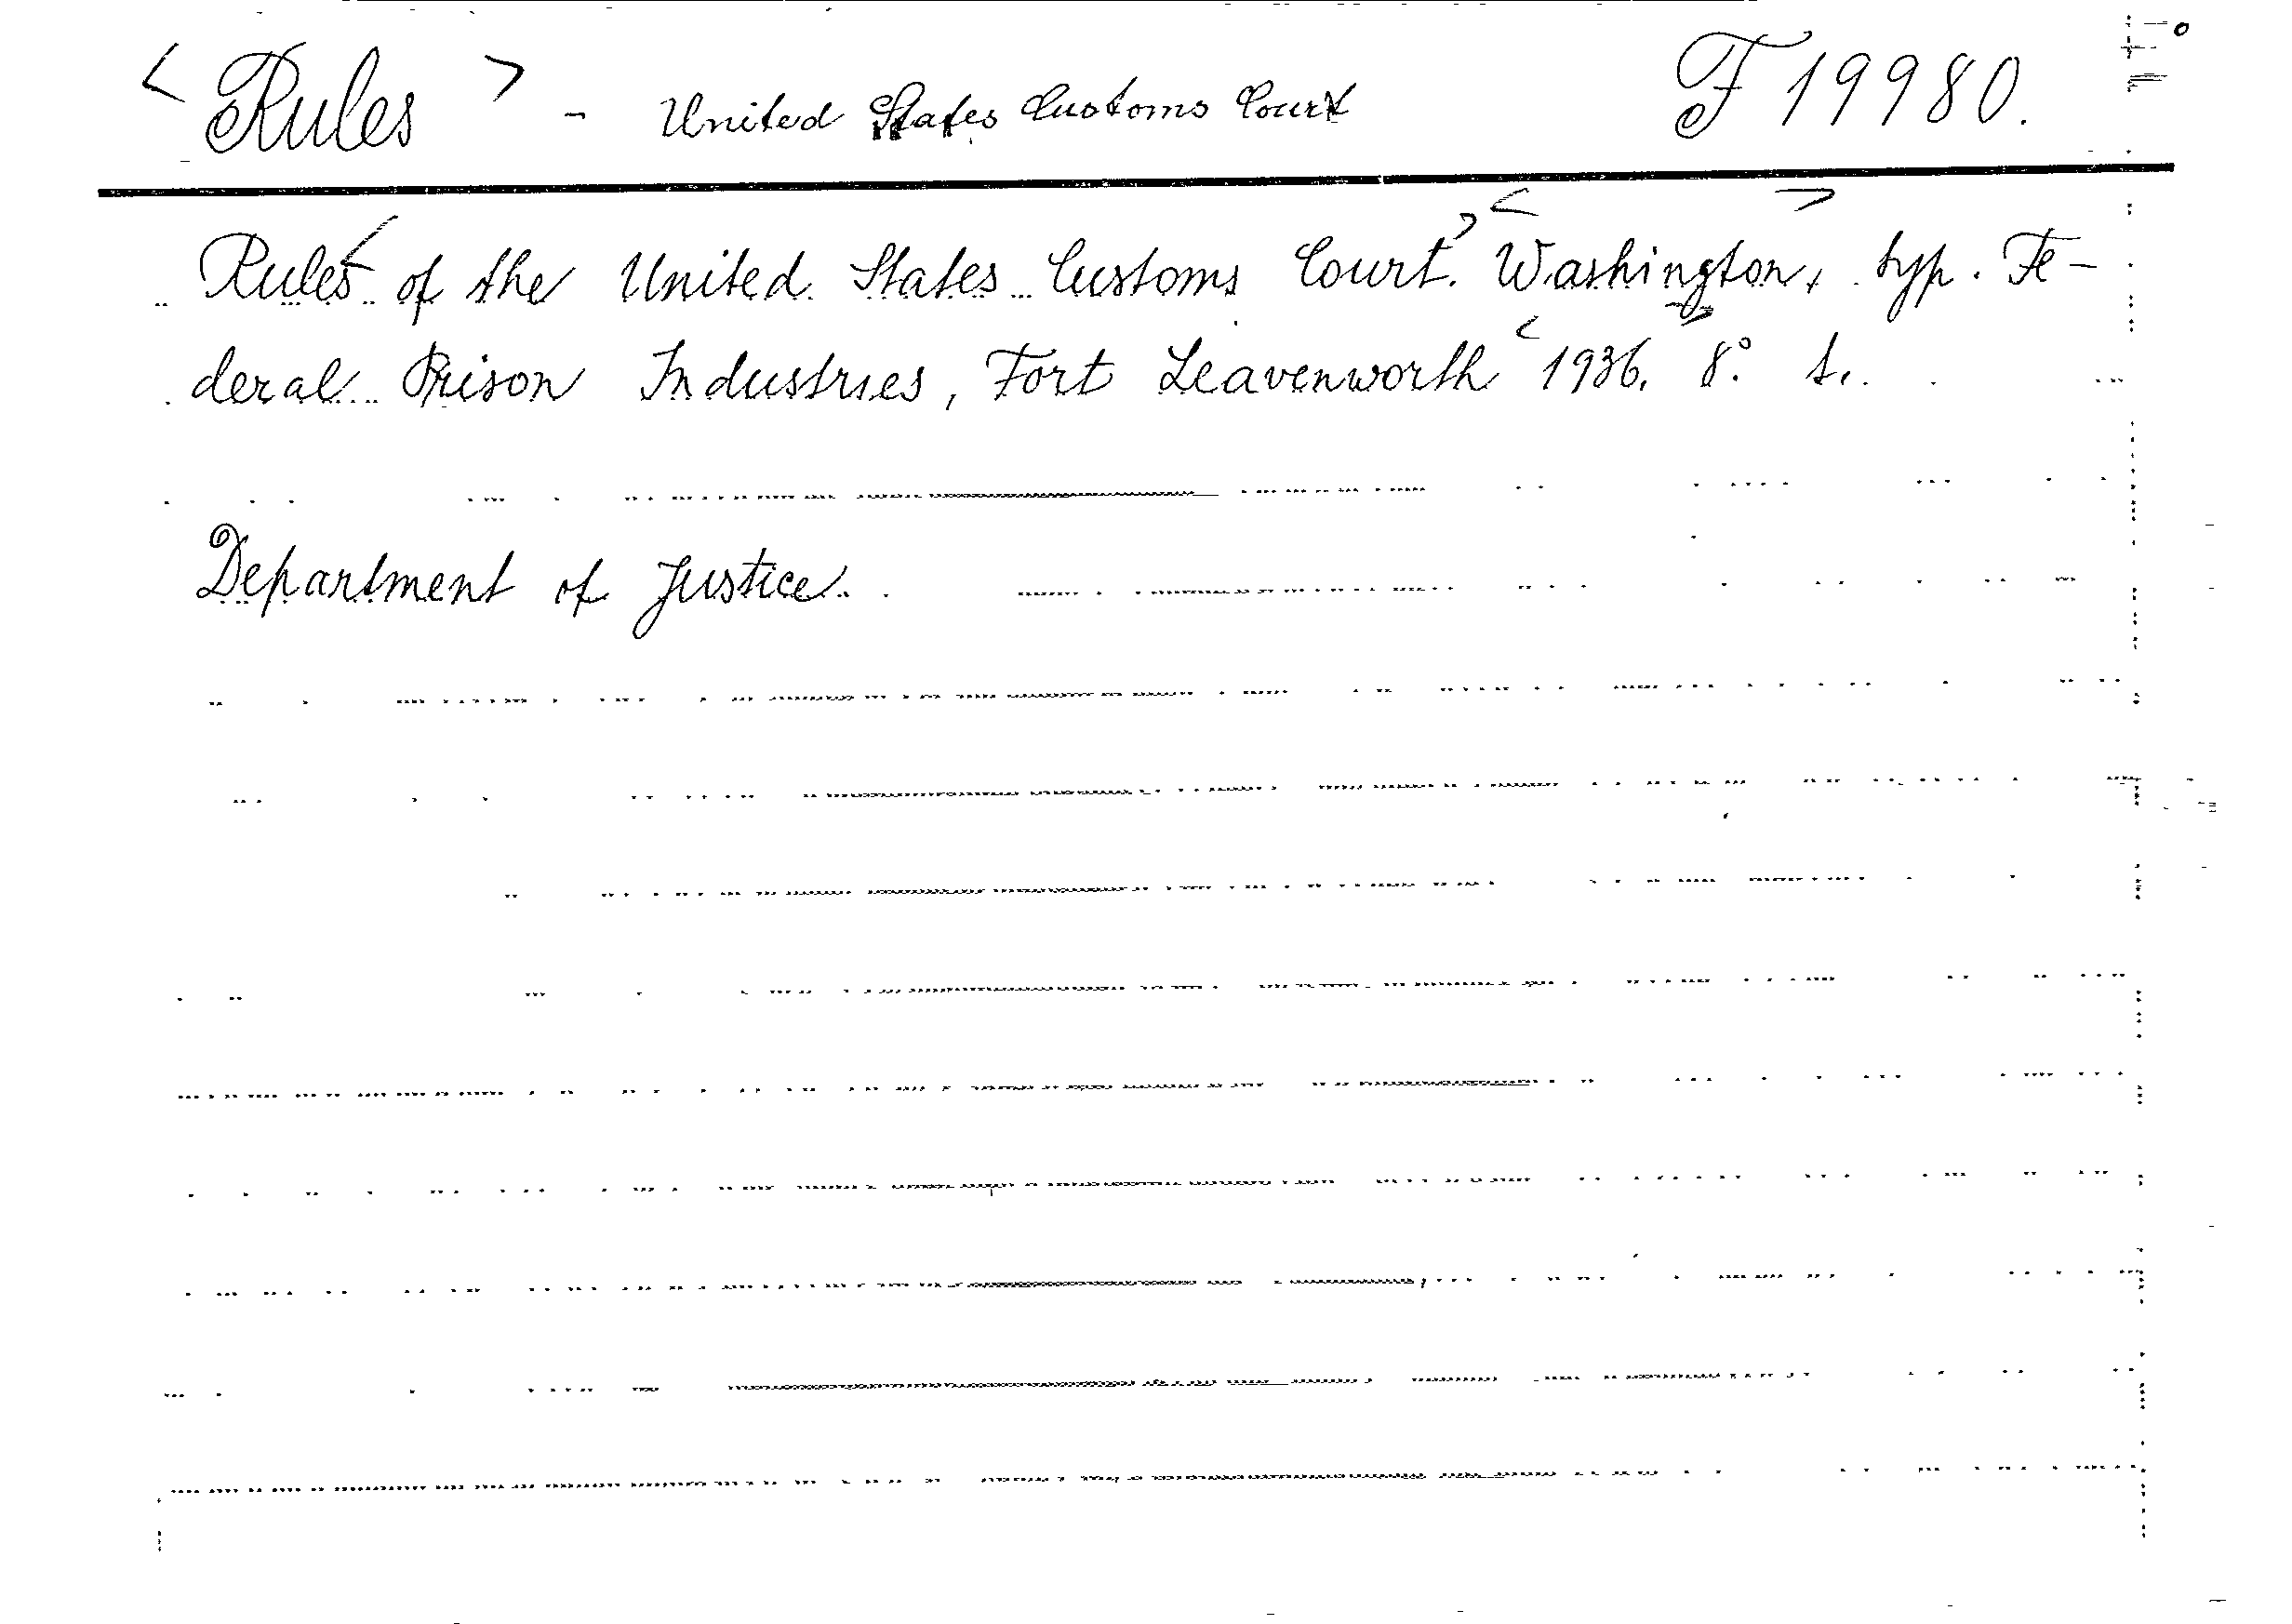 < Rules > - United States Customs Court F 19980.
Rules < of the United States Customs Court. > < Washington, > typ. Fe-
deral Prison Industries, Fort Leavenworth < 1936. > 8°. s.
Department of Justice.